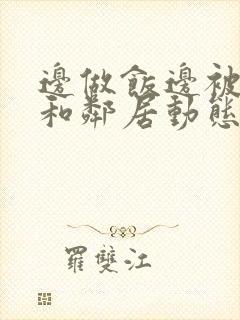 邊做飯邊被
和鄰居動態
羅雙江